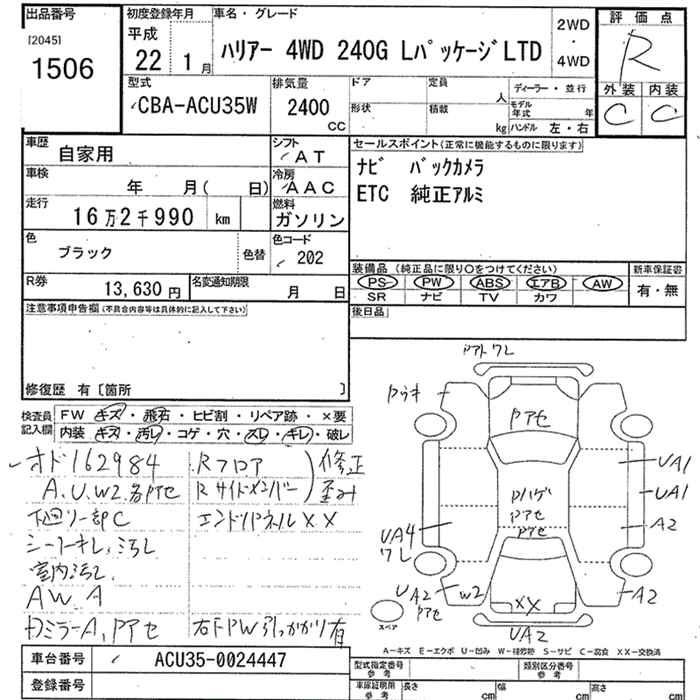 出品番号 初度登録年月 車名・グレード 2WD ・ 4WD 評価点
[2045] 1506
平成 22 1月 ハリアー 4WD 240G LパッケージLTD
R
外装 内装
C C
型式 排気量 ドア 定員 人 ディーラー・並行
CBA-ACU35W 2400 CC
形状 積載 kg モデル年式 年 ハンドル 左・右
車歴 自家用 シフト AT
セールスポイント(正常に機能するものに限ります)
ナビ バックカメラ
ETC 純正アルミ
車検 年 月( 日) 冷房 AAC
走行 16万2千990 km 燃料 ガソリン
色 ブラック 色替 色コード 202
装備品(純正品に限り○をつけてください) 新車保証書
PS PW ABS エアB AW 有・無
SR ナビ TV カワ
R券 13,630 円 名変通知期限 月 日
後日品
注意事項申告欄(不具合内容等は具体的に記入して下さい)
修復歴 有〔箇所 〕
検査員記入欄
FW キズ・飛石・ヒビ割・リペア跡・×要
内装 キズ・汚レ・コゲ・穴・スレ・キレ・破レ
オド162984 Rフロア 修正
A.U.W2.各Pアセ Rサイドメンバー 歪み
下廻リ一部C エンドパネルXX
シートキレ,汚レ
室内汚レ.
AW A
DミラーA,Pアセ 右FPW引っかかり有
Pアトワレ
Pウキ
Pアセ
UA1
UA1
A2
Pハゲ
Pアセ
Pアセ
UA4
ワレ
UA2
Pアセ
W2
XX
A2
UA2
スペア
A-キズ E-エクボ U-凹み W-補修跡 S-サビ C-腐食 XX-交換済
車台番号 ACU35-0024447
登録番号
型式指定番号 参考 類別区分番号 参考
車庫証明用 参考 長さ cm 幅 cm 高さ cm